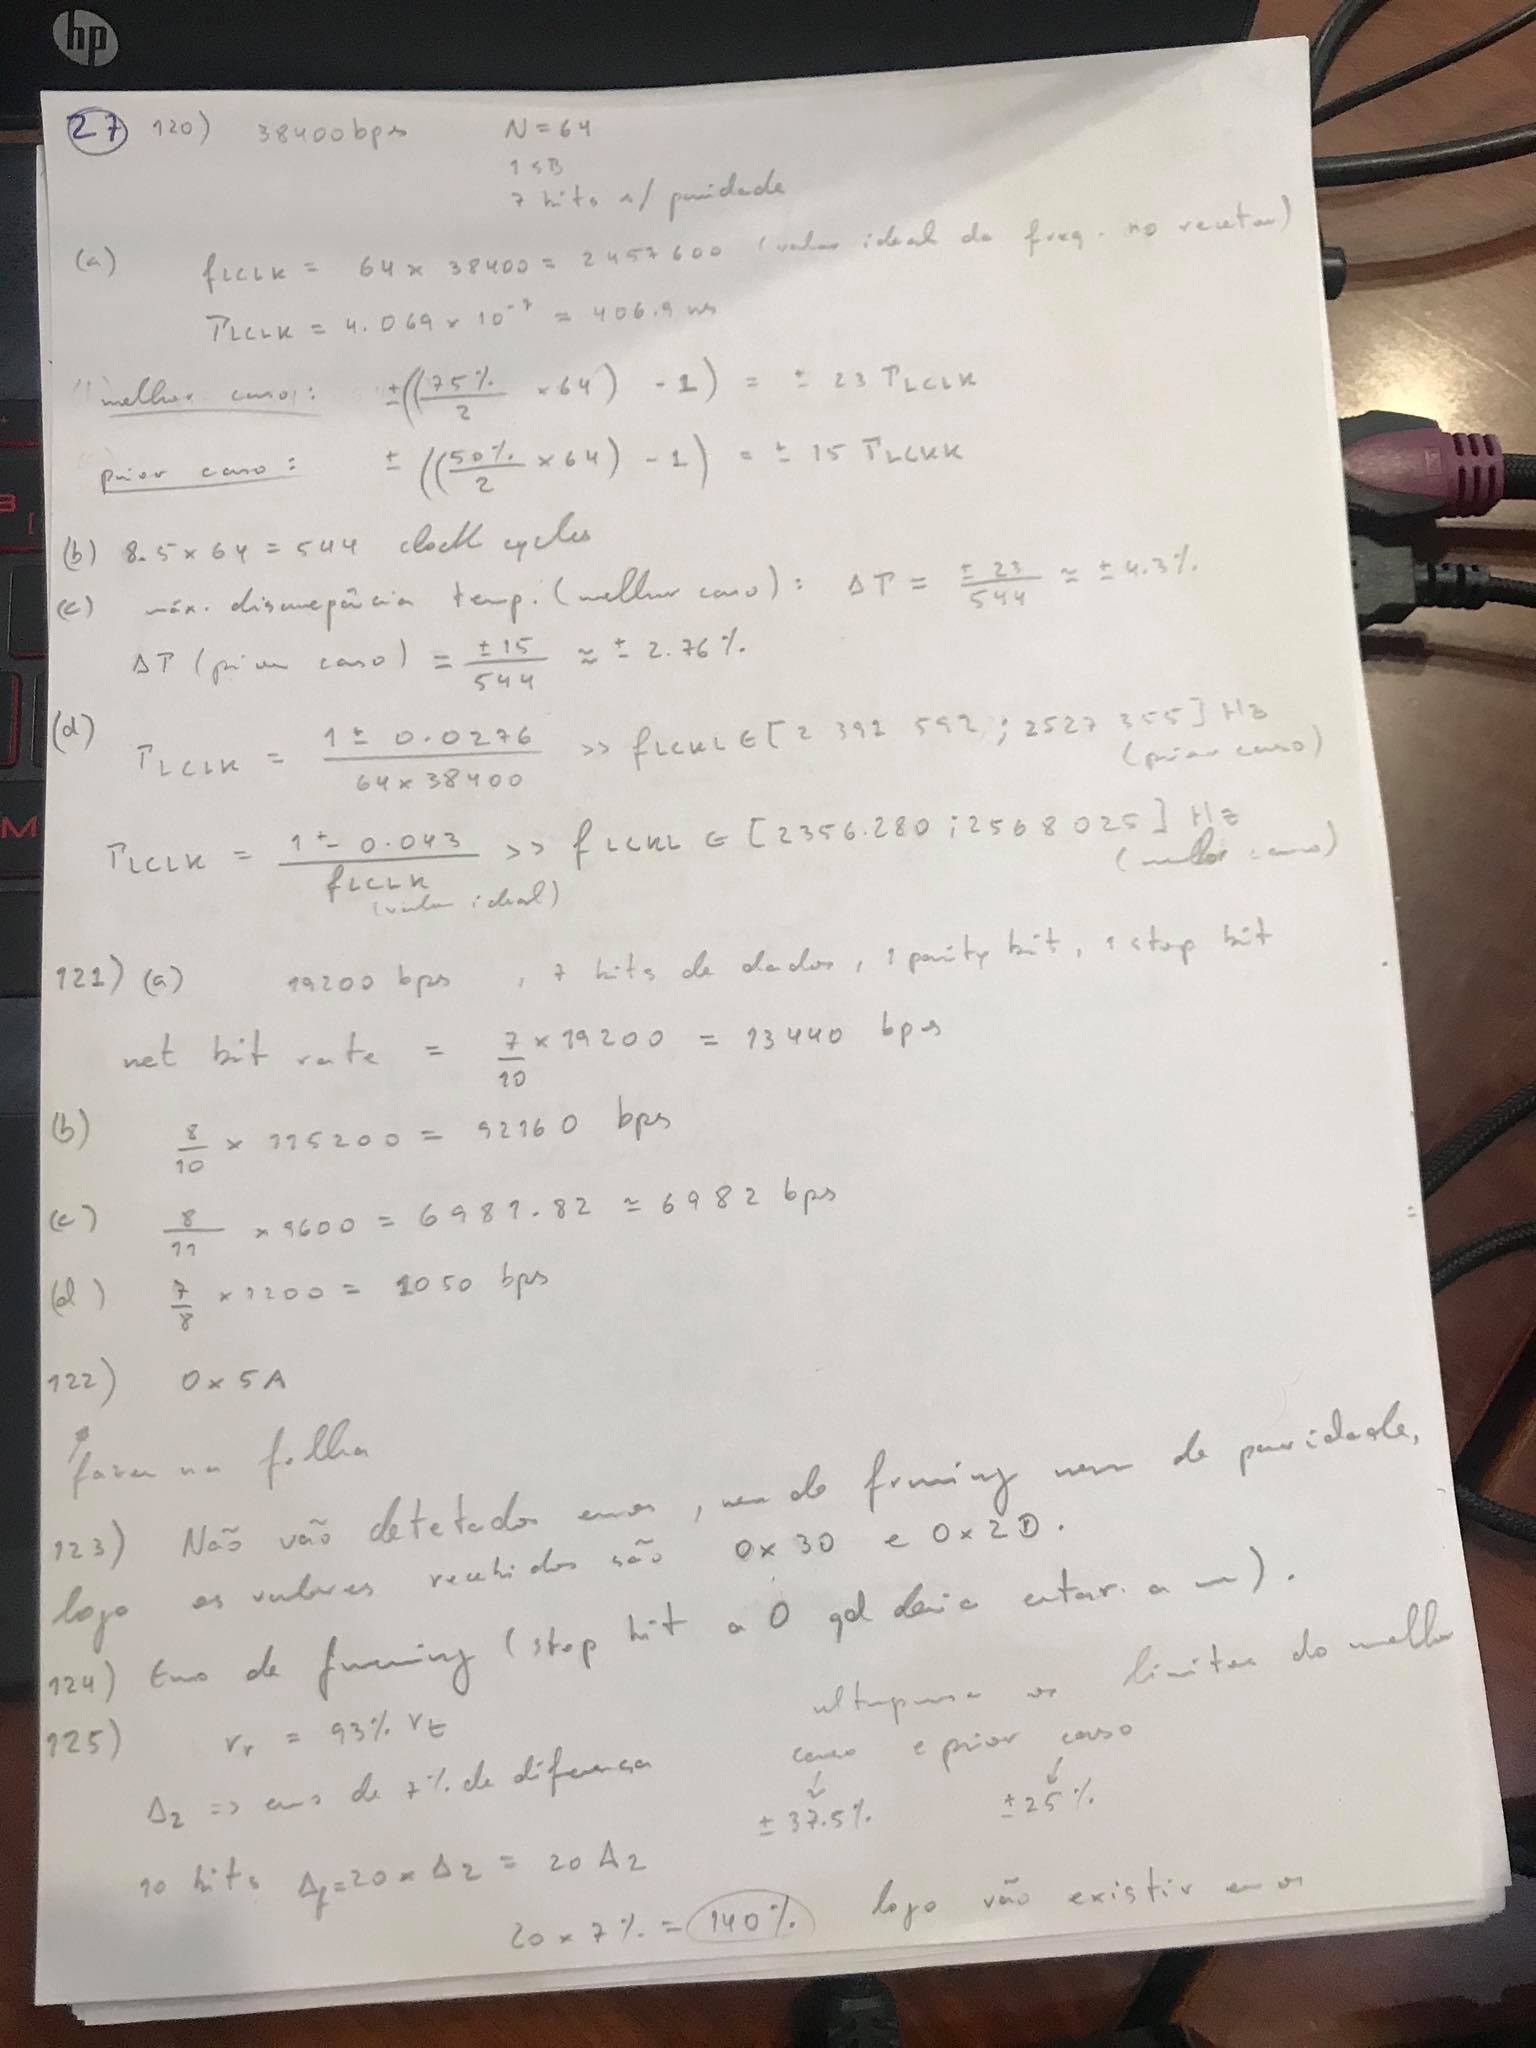 hp
27 120) 38400bps N = 64
1 SB
7 bits s/ paridade
(a) fLCLK = 64 × 38400 = 2457600 (valor ideal da freq. no recetor)
TLCLK = 4.069 × 10⁻⁷ = 406.9 ns
melhor caso: ± ((75%/2 × 64) - 1) = ± 23 TLCLK
pior caso: ± ((50%/2 × 64) - 1) = ± 15 TLCKK
(b) 8.5 × 64 = 544 clock cycles
(c) máx. discrepância temp. (melhor caso): ΔT = ± 23/544 ≈ ± 4.3%
ΔT (pior caso) = ± 15/544 ≈ ± 2.76%
(d) TLCLK = 1 ± 0.0276/64 × 38400 >> fLCKL ∈ [2 392 592 ; 2527 355] Hz
(pior caso)
TLCLK = 1 ± 0.043/fLCLK >> fLCKL ∈ [2356.280 ; 2568 025] Hz
(valor ideal) (melhor caso)
121) (a) 19200 bps , 7 bits de dados, 1 parity bit, 1 stop bit
net bit rate = 7/10 × 19200 = 13440 bps
(b) 8/10 × 115200 = 92160 bps
(c) 8/11 × 9600 = 6981.82 ≃ 6982 bps
(d) 7/8 × 1200 = 1050 bps
122) 0x5A
fazer na folha
123) Não vão detetados erros, nem de framing nem de paridade,
logo os valores recebidos são 0x30 e 0x2D.
124) Erro de framing (stop bit a 0 qd devia estar a um).
125) rr = 93% rt
ultrapassa os limites do melhor
caso e pior caso
Δ2 => erro de 7% de diferença
± 37.5% ± 25%
10 bits Δf = 20 × Δ2 = 20 Δ2
20 × 7% = 140% logo vão existir erros